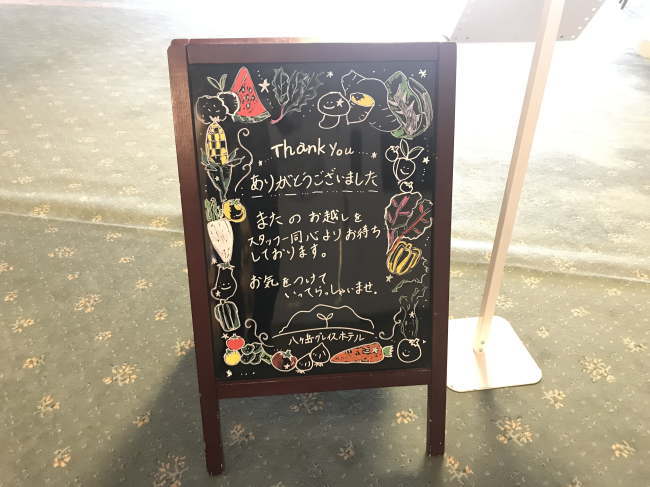 Thank you...
ありがとうございました
またのお越しを
スタッフ一同心よりお待ち
しております。
お気をつけて
いってらっしゃいませ。
八ヶ岳グレイスホテル